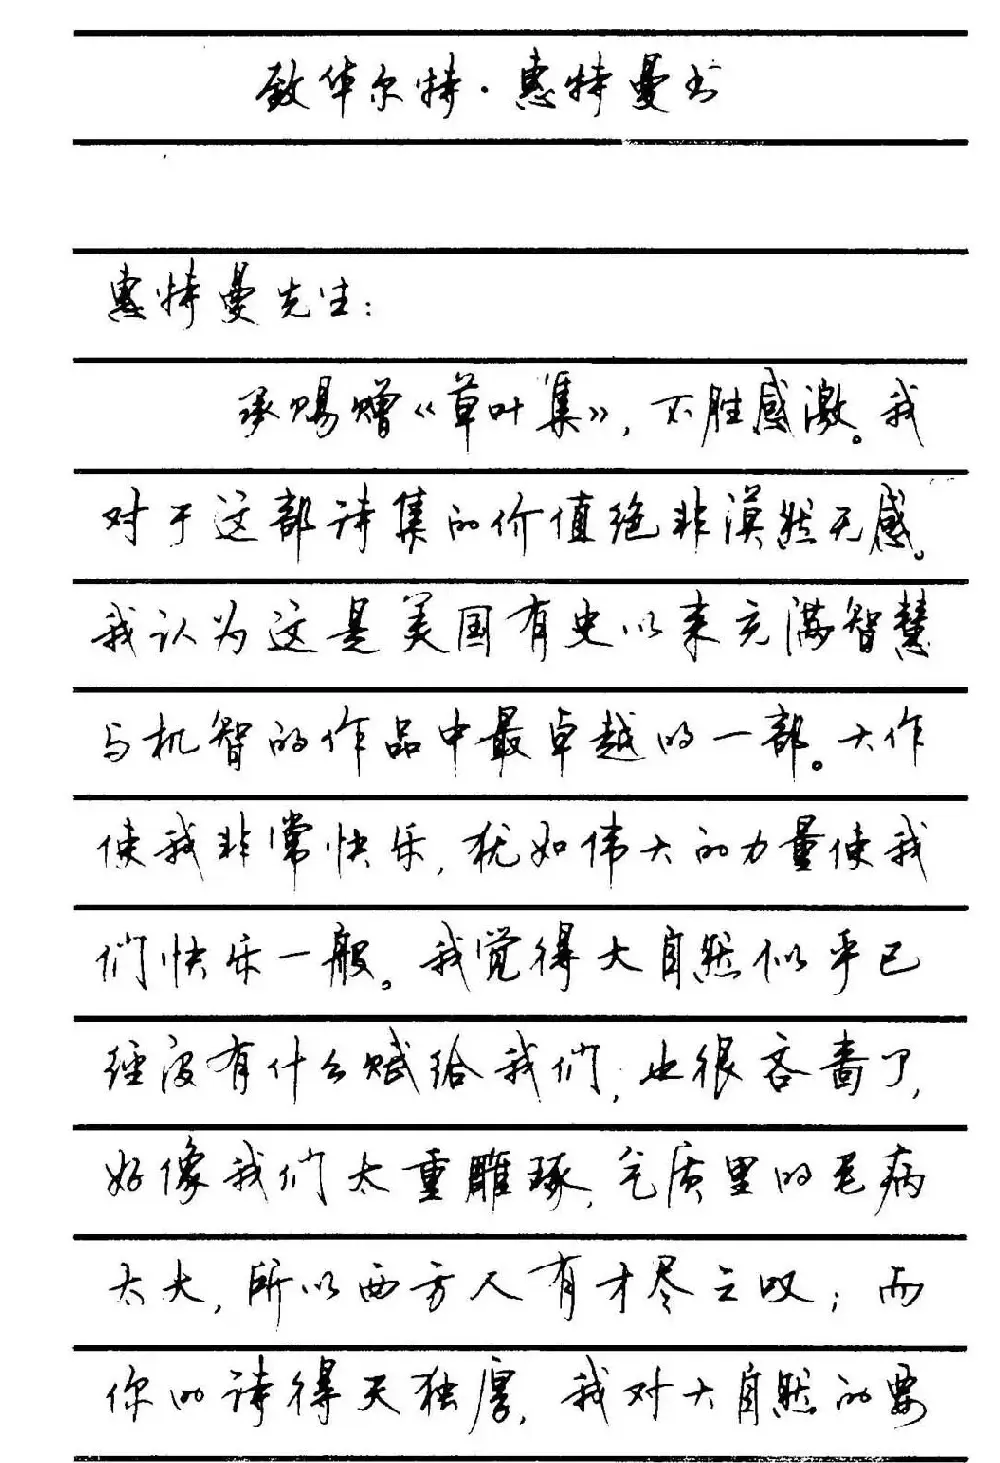 致华尔特·惠特曼书
惠特曼先生:
承赐赠《草叶集》,不胜感激。我
对于这部诗集的价值绝非漠然无感。
我认为这是美国有史以来充满智慧
与机智的作品中最卓越的一部。大作
使我非常快乐,犹如伟大的力量使我
们快乐一般。我觉得大自然似乎已
经没有什么赋给我们,也很吝啬了,
好像我们太重雕琢,气质里的毛病
太大,所以西方人有才尽之叹;而
你的诗得天独厚,我对大自然的要